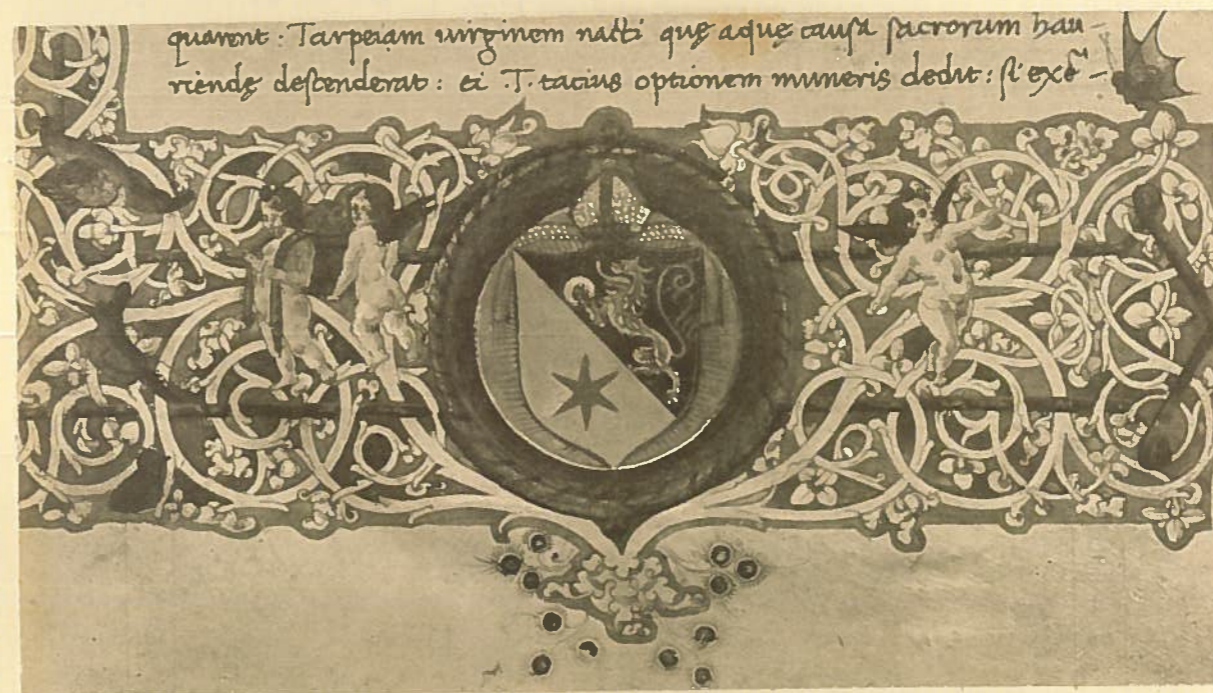 quarent : Tarpeiam uirginem nacti quę aquę causa sacrorum hau-
riendę descenderat : ei .T. tacius optionem muneris dedit : si exē-